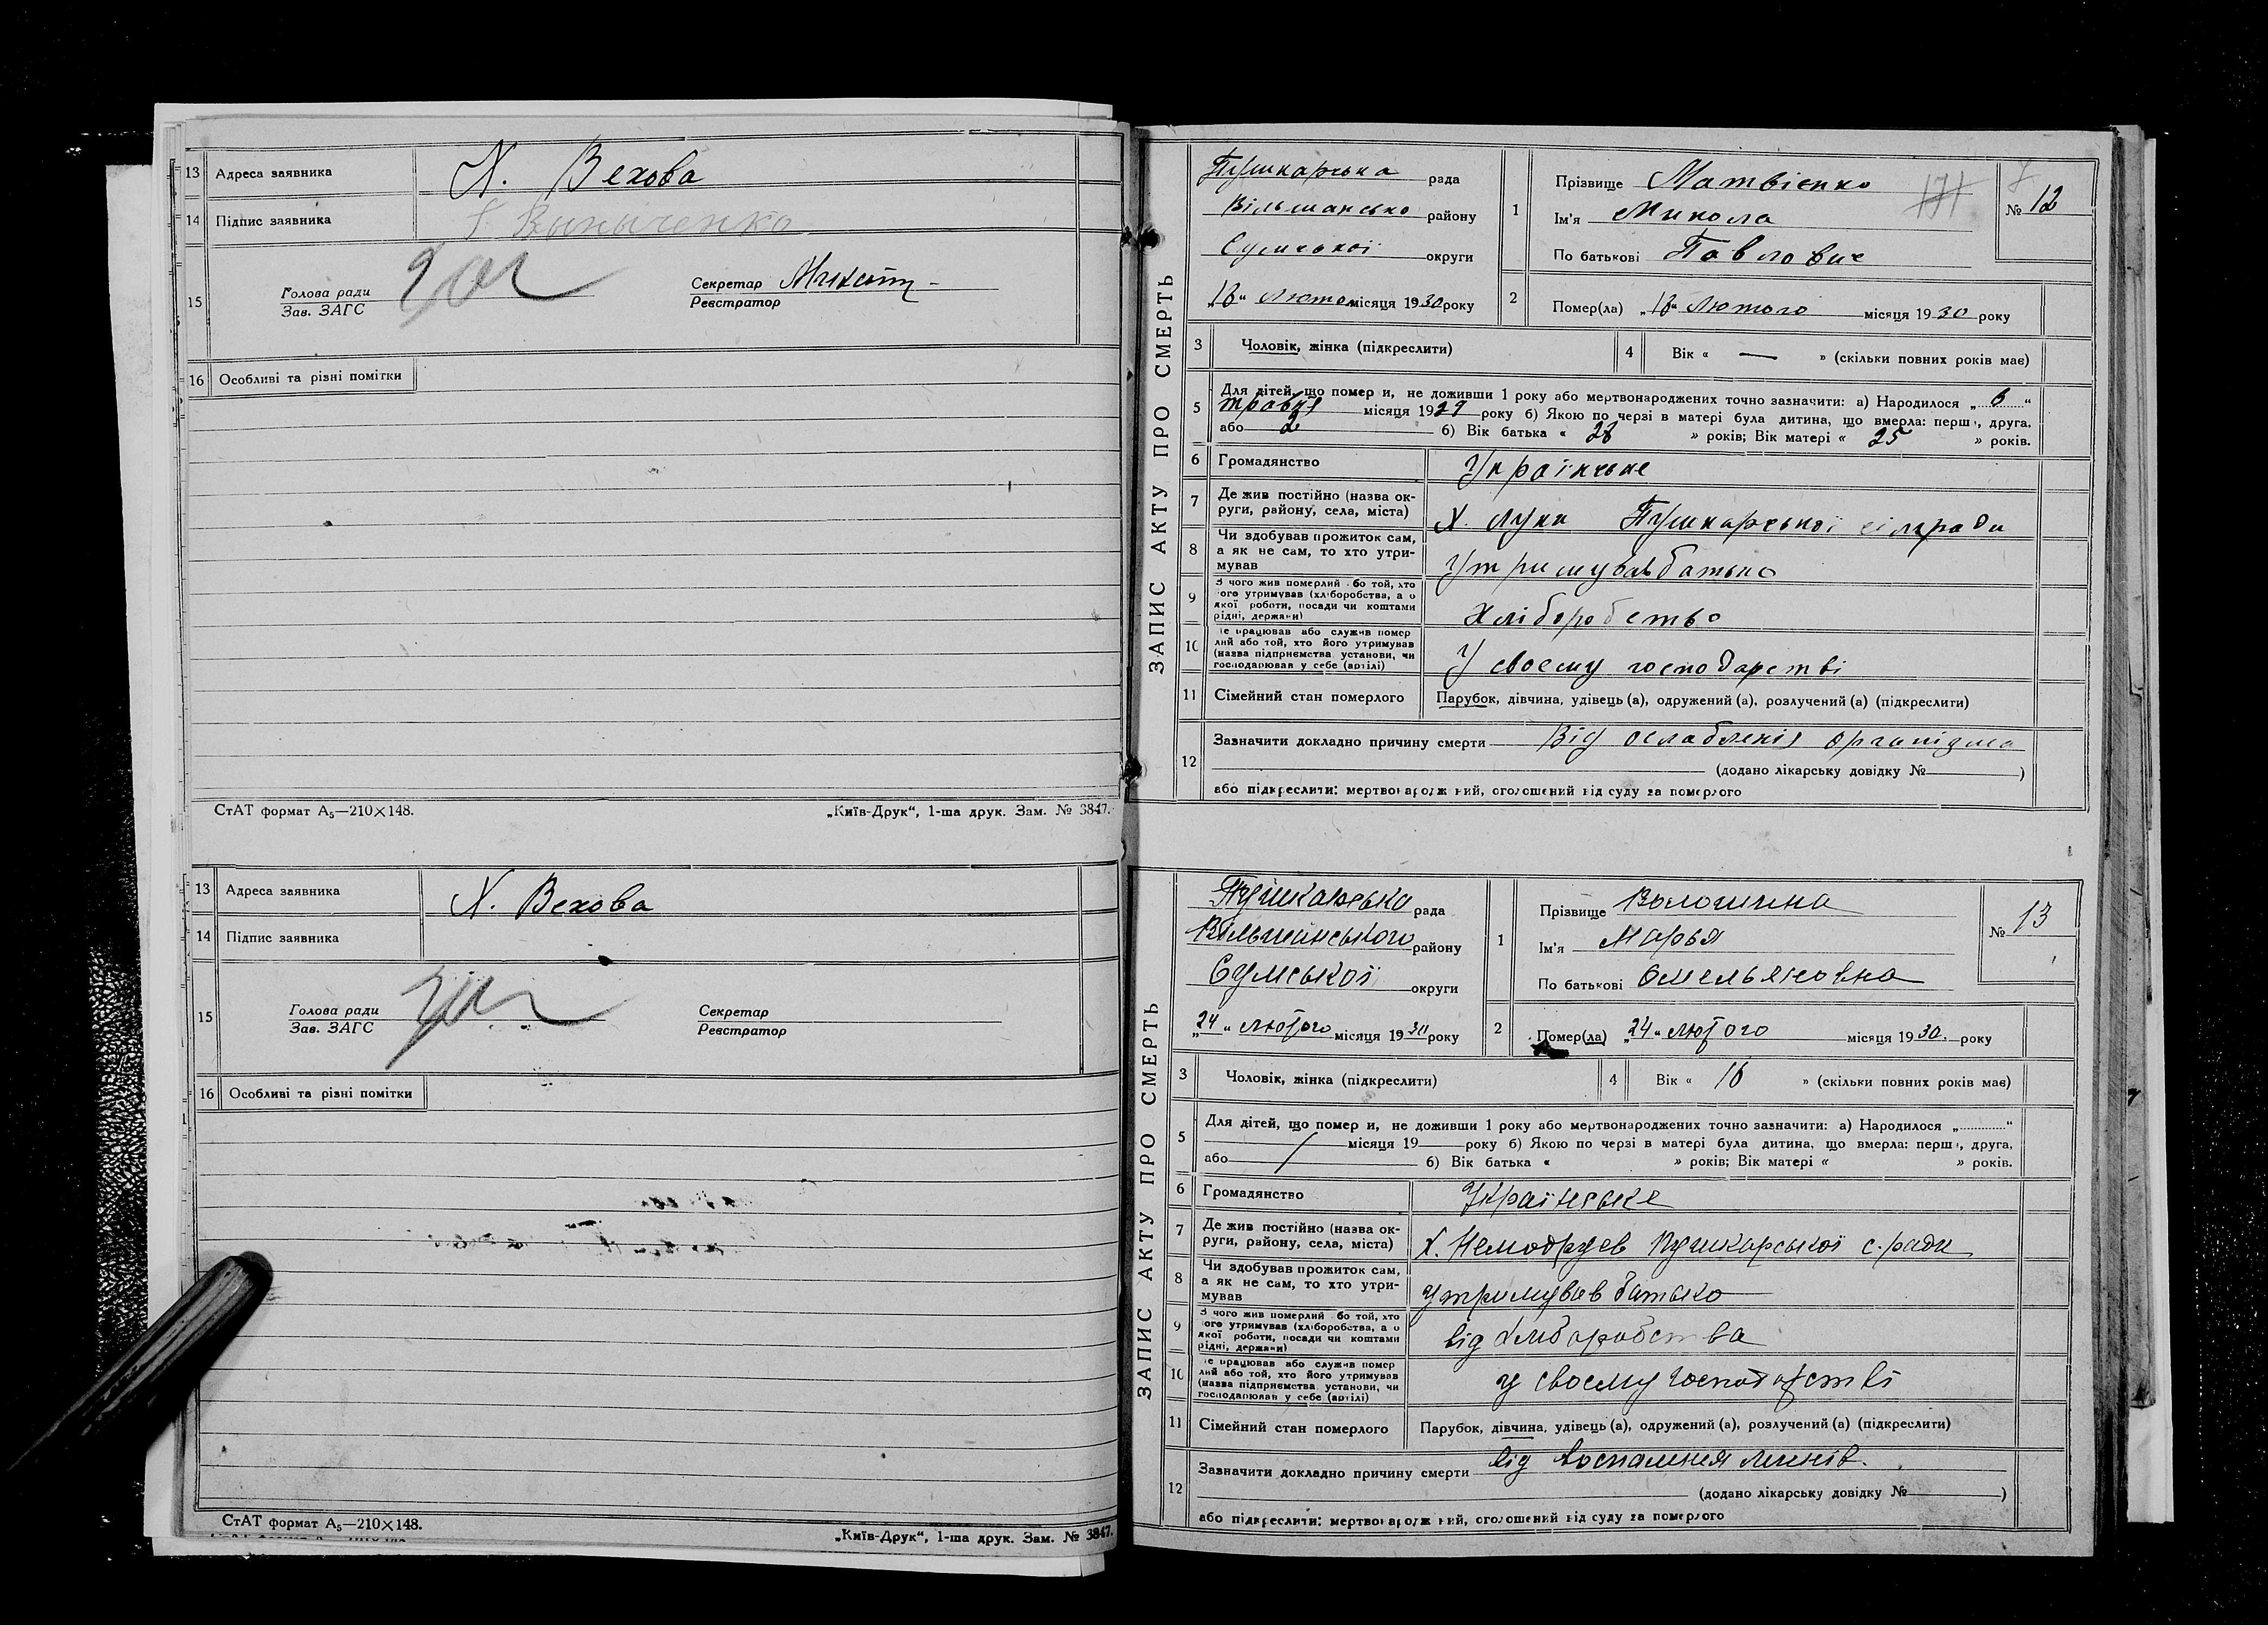 13 Адреса заявника Х. Вехова
14 Підпис заявника
15 Голова ради
Зав. ЗАГС
Секретар
Реєстратор
16 Особливі та різні помітки
СтАТ формат А5—210×148. „Київ-Друк“, 1-ша друк. Зам. № 3847.
13 Адреса заявника Х. Вехова
14 Підпис заявника
15 Голова ради
Зав. ЗАГС
Секретар
Реєстратор
16 Особливі та різні помітки
СтАТ формат А5—210×148.
„Київ-Друк“, 1-ша друк. Зам. № 3847.
ЗАПИС АКТУ ПРО СМЕРТЬ
Пушкарська рада
Вільшансько району
Сумської округи
„18“ Лютого місяця 1930 року
1 Прізвище Матвієнко 171
Ім'я Микола
По батькові Павлович
№ 12
2 Помер(ла) „18“ Лютого місяця 1930 року
3 Чоловік, жінка (підкреслити)
4 Вік « — » (скільки повних років має)
5 Для дітей, що померли, не доживши 1 року або мертвонароджених точно зазначити: а) Народилося „ 6 “
травня місяця 1929 року б) Якою по черзі в матері була дитина, що вмерла: перша, друга,
або 2 б) Вік батька « 28 » років; Вік матері « 25 » років.
6 Громадянство Українське
7 Де жив постійно (назва округи, району, села, міста) Х. Луки Пушкарської сільради
8 Чи здобував прожиток сам,
а як не сам, то хто утримував
Утримував батько
9 З чого жив померлий або той, хто
його утримував (хліборобства, або
якої роботи, посади чи коштами
рідні, держави)
Хліборобство
10 Де працював або служив померлий
або той, хто його утримував
(назва підприємства, установи, чи
господарював у себе (артілі)
У своєму господарстві
11 Сімейний стан померлого Парубок, дівчина, удівець (а), одружений (а), розлучений (а) (підкреслити)
12 Зазначити докладно причину смерти Від ослабленія організма
(додано лікарську довідку № )
або підкреслити: мертвонароджений, оголошений від суду за померлого
ЗАПИС АКТУ ПРО СМЕРТЬ
Пушкарська рада
Вільшанського району
Сумської округи
„24“ лютого місяця 1930 року
1 Прізвище Волошина
Ім'я Марья
По батькові Омельяновна
№ 13
2 Помер(ла) „24“ лютого місяця 1930. року
3 Чоловік, жінка (підкреслити)
4 Вік « 16 » (скільки повних років має)
5 Для дітей, що померли, не доживши 1 року або мертвонароджених точно зазначити: а) Народилося „ “
місяця 19 року б) Якою по черзі в матері була дитина, що вмерла: перша, друга,
або б) Вік батька « » років; Вік матері « » років.
6 Громадянство Українське
7 Де жив постійно (назва округи, району, села, міста) Х. Пушкарської с. ради
8 Чи здобував прожиток сам,
а як не сам, то хто утримував
утримував батько
9 З чого жив померлий або той, хто
його утримував (хліборобства, або
якої роботи, посади чи коштами
рідні, держави)
від хліборобства
10 Де працював або служив померлий
або той, хто його утримував
(назва підприємства, установи, чи
господарював у себе (артілі)
у своєму господарстві
11 Сімейний стан померлого Парубок, дівчина, удівець (а), одружений (а), розлучений (а) (підкреслити)
12 Зазначити докладно причину смерти від
(додано лікарську довідку № )
або підкреслити: мертвонароджений, оголошений від суду за померлого